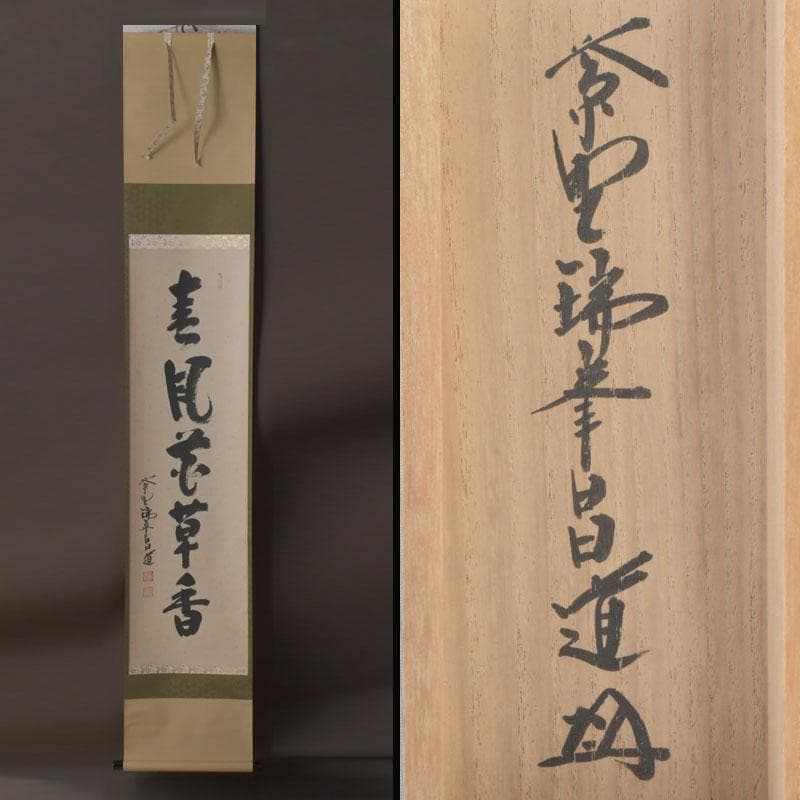 春風花草香
紫野瑞峯昌道
紫野瑞峯昌道